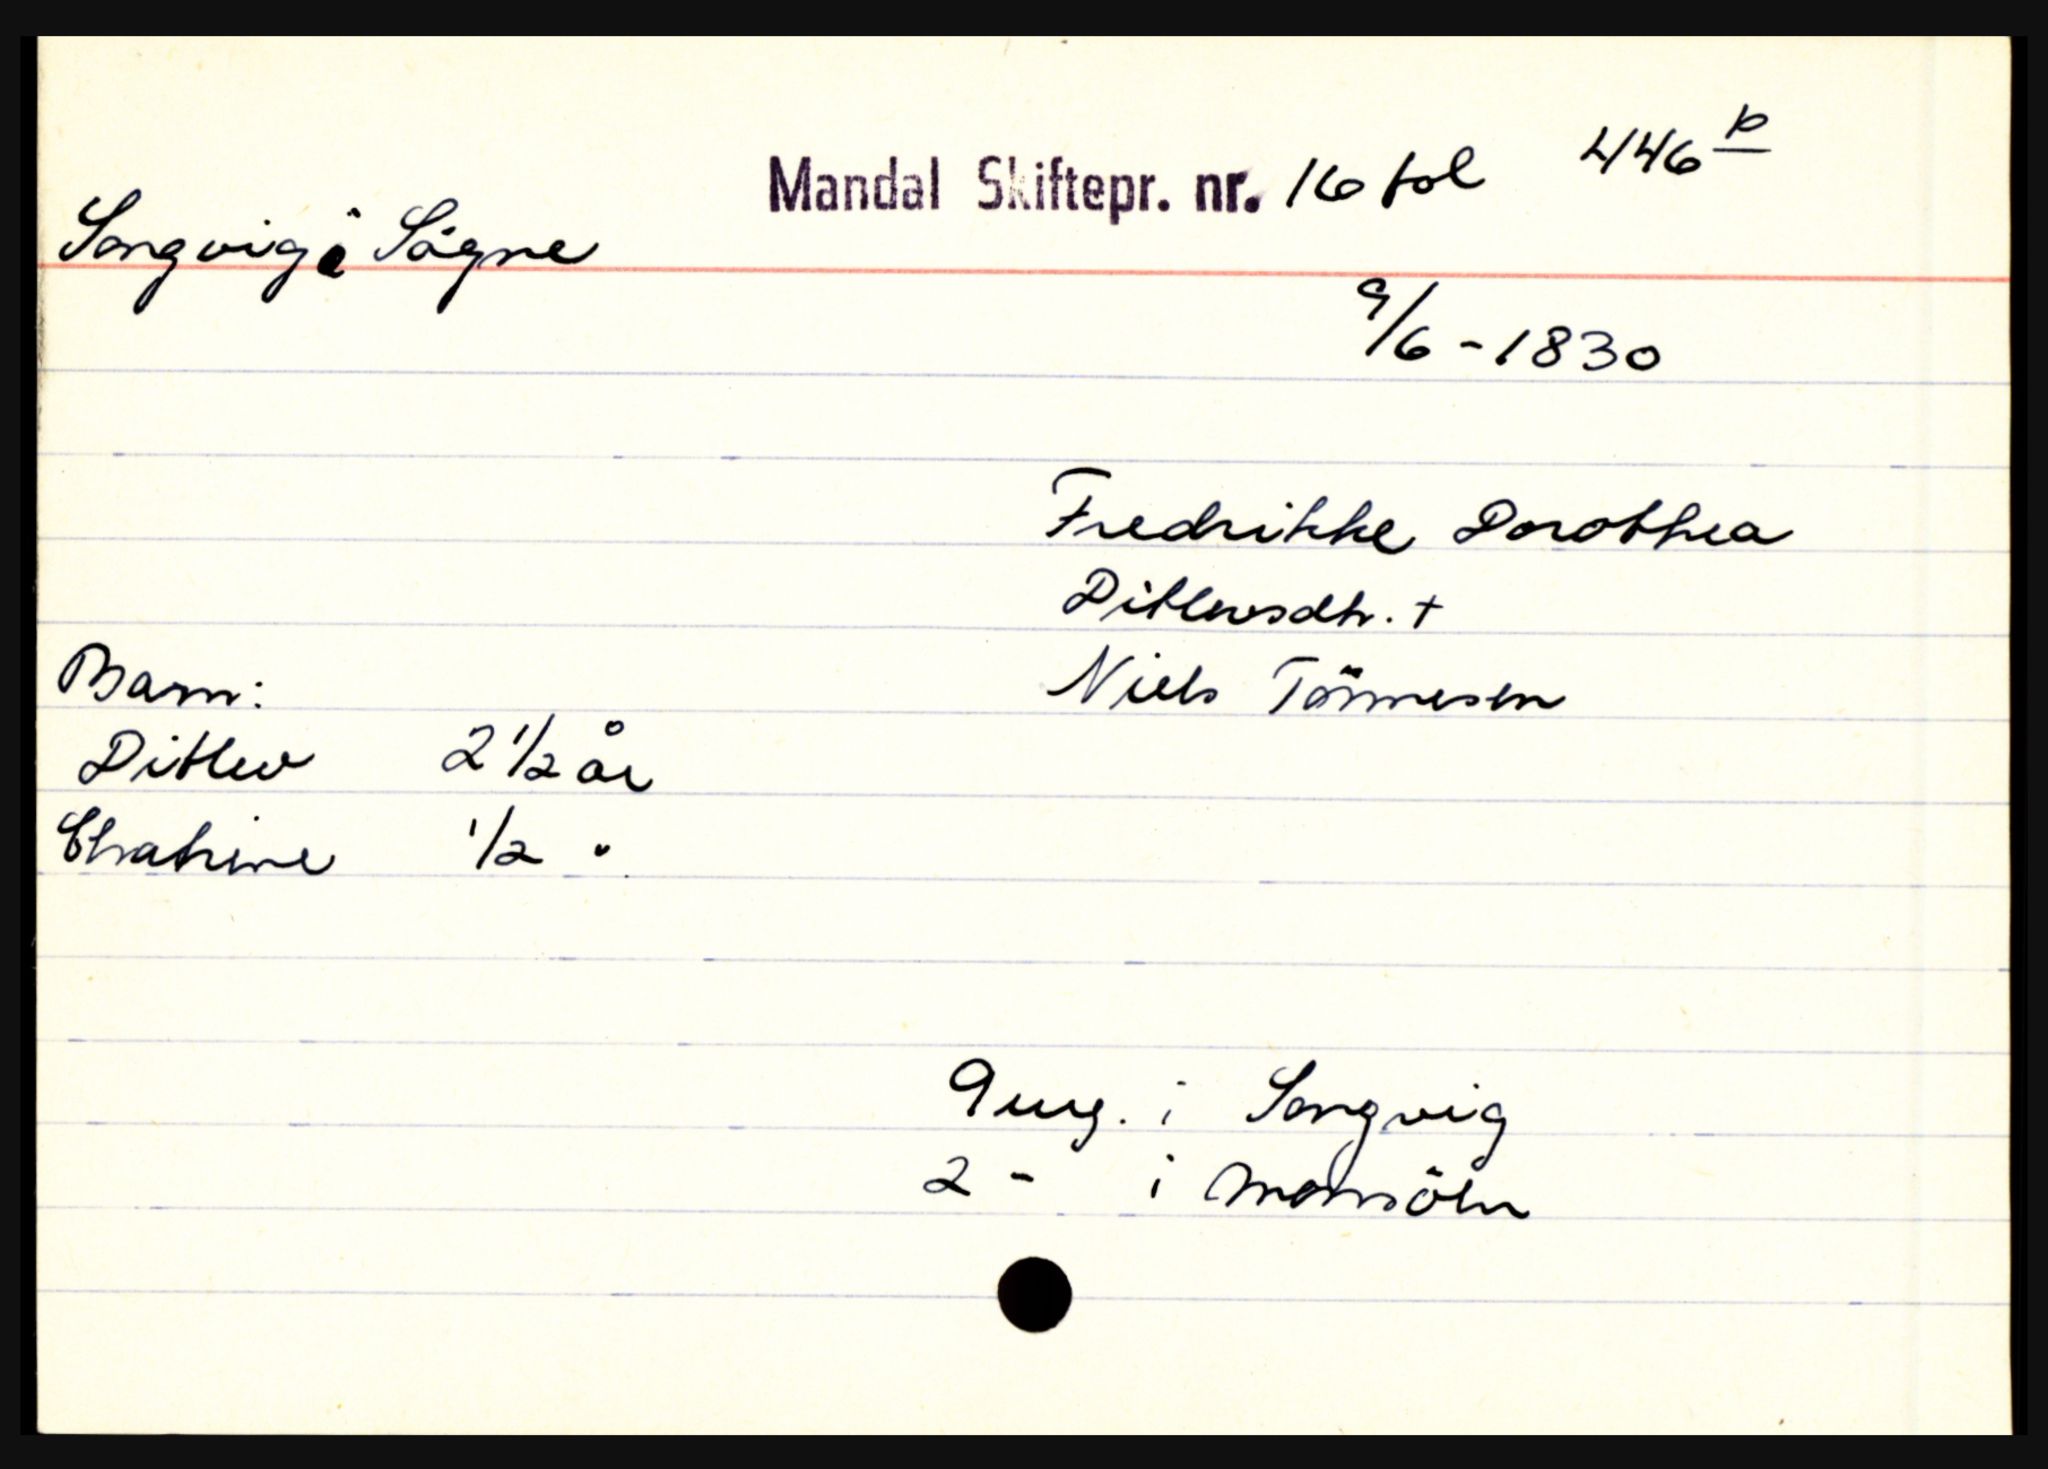 Mandal Skiftepr. nr. 16 fol 446 b
Songvig i Sögne
9/6 - 1830
Fredrikke Dorothea
Ditlevsdtr. +
Barn:
Niels Tönnesen
Ditlev 2 1/2 år
Chatrine 1/2 "
9 eng. i Songvig
2 - i